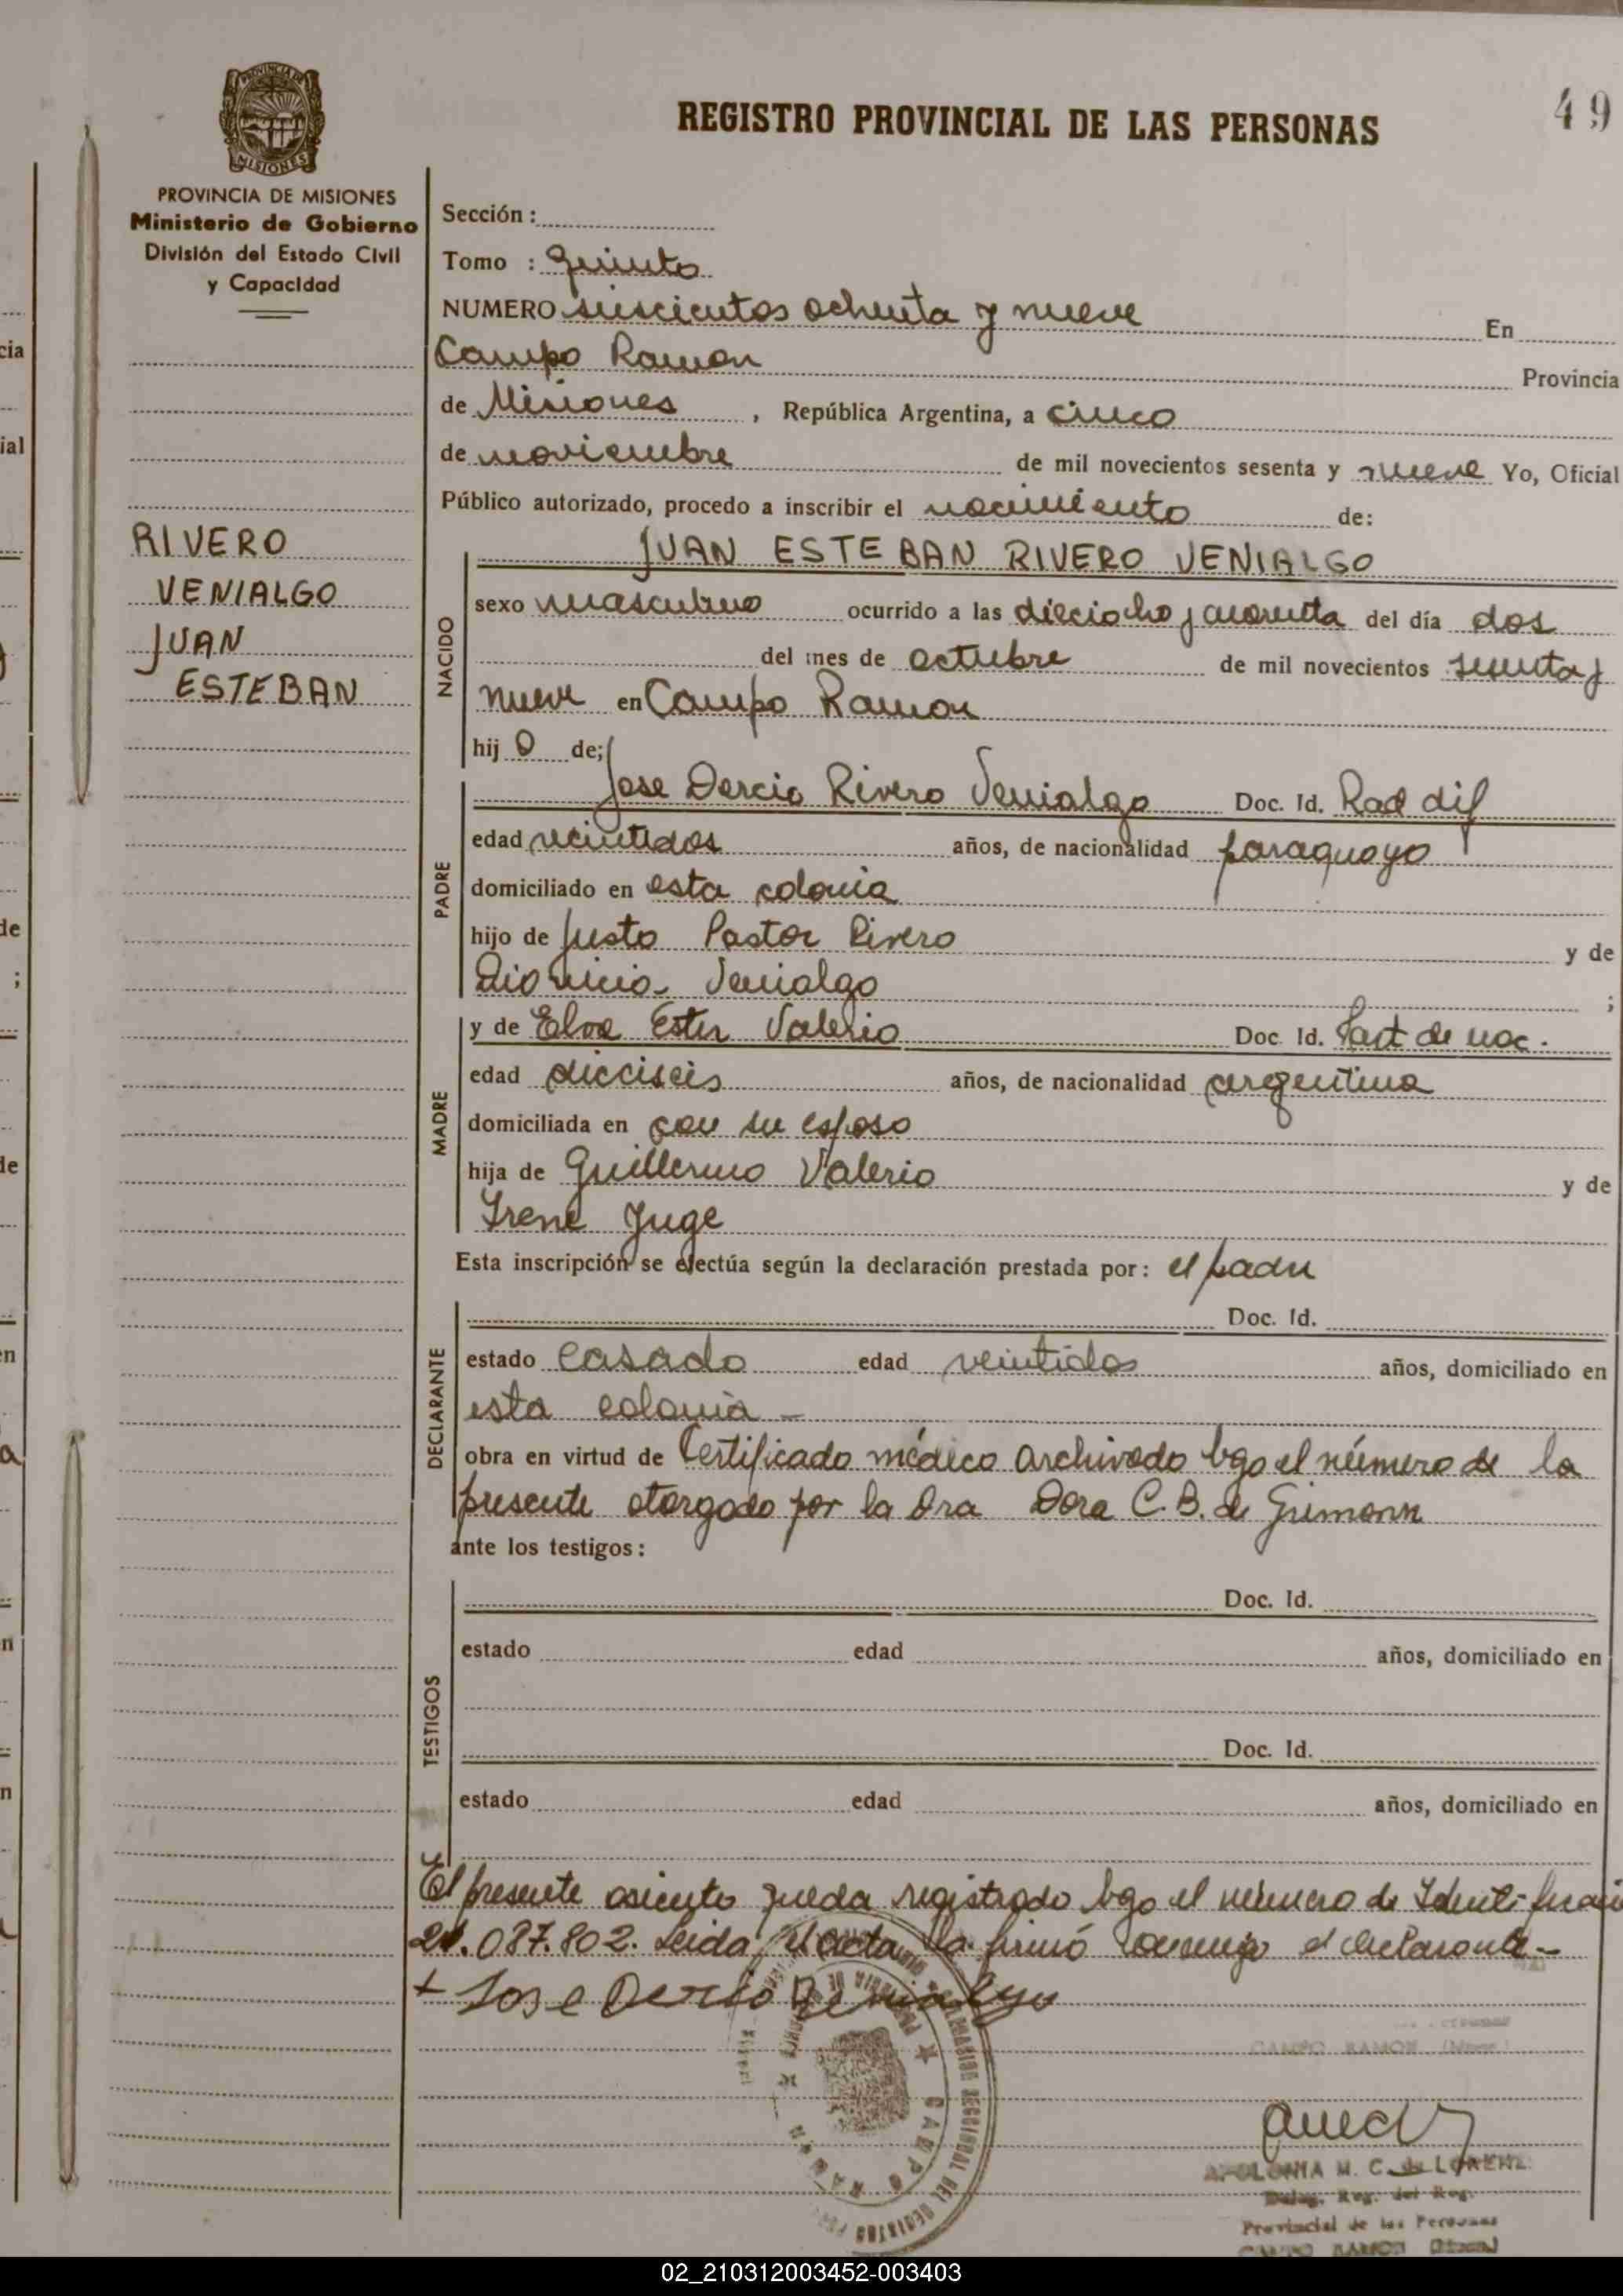 PROVINCIA DE
MISIONES
PROVINCIA DE MISIONES
Ministerio de Gobierno
División del Estado Civil
y Capacidad
REGISTRO PROVINCIAL DE LAS PERSONAS
49
Sección :
Tomo : Quinto
NUMERO seiscientos ochenta y nueve En
Campo Ramon Provincia
de Misiones , República Argentina, a cinco
de noviembre de mil novecientos sesenta y nueve Yo, Oficial
Público autorizado, procedo a inscribir el nacimiento de:
RIVERO
VENIALGO
JUAN
ESTEBAN
NACIDO
JUAN ESTEBAN RIVERO VENIALGO
sexo masculino ocurrido a las dieciocho y cuarenta del día dos
del mes de octubre de mil novecientos sesenta y
nueve en Campo Ramon
hij o de;
PADRE
Jose Dercio Rivero Venialgo Doc. Id. Rad dif
edad veintidos años, de nacionalidad paraguayo
domiciliado en esta colonia
hijo de Justo Pastor Rivero y de
Dionicia Venialgo ;
MADRE
y de Elva Ester Valerio Doc Id. Part de nac.
edad dieciseis años, de nacionalidad argentina
domiciliada en con su esposo
hija de Guillermo Valerio y de
Irene Yuge
Esta inscripción se efectúa según la declaración prestada por: el padre
DECLARANTE
Doc. Id.
estado casado edad veintidos años, domiciliado en
esta colonia -
obra en virtud de Certificado médico archivado bajo el número de la
presente otorgado por la Dra Dora C.B. de Grimonn
ante los testigos:
TESTIGOS
Doc. Id.
estado edad años, domiciliado en
Doc. Id.
estado edad años, domiciliado en
El presente asiento queda registrado bajo el número de
21.087.802. Leida el acta la firmó conmigo el declarante.-
+ Jose Dercio
CAMPO RAMON
APOLONIA M. C. de LORENZ
Deleg. Reg. del Reg.
Provincial de las Personas
CAMPO RAMON
02_210312003452-003403